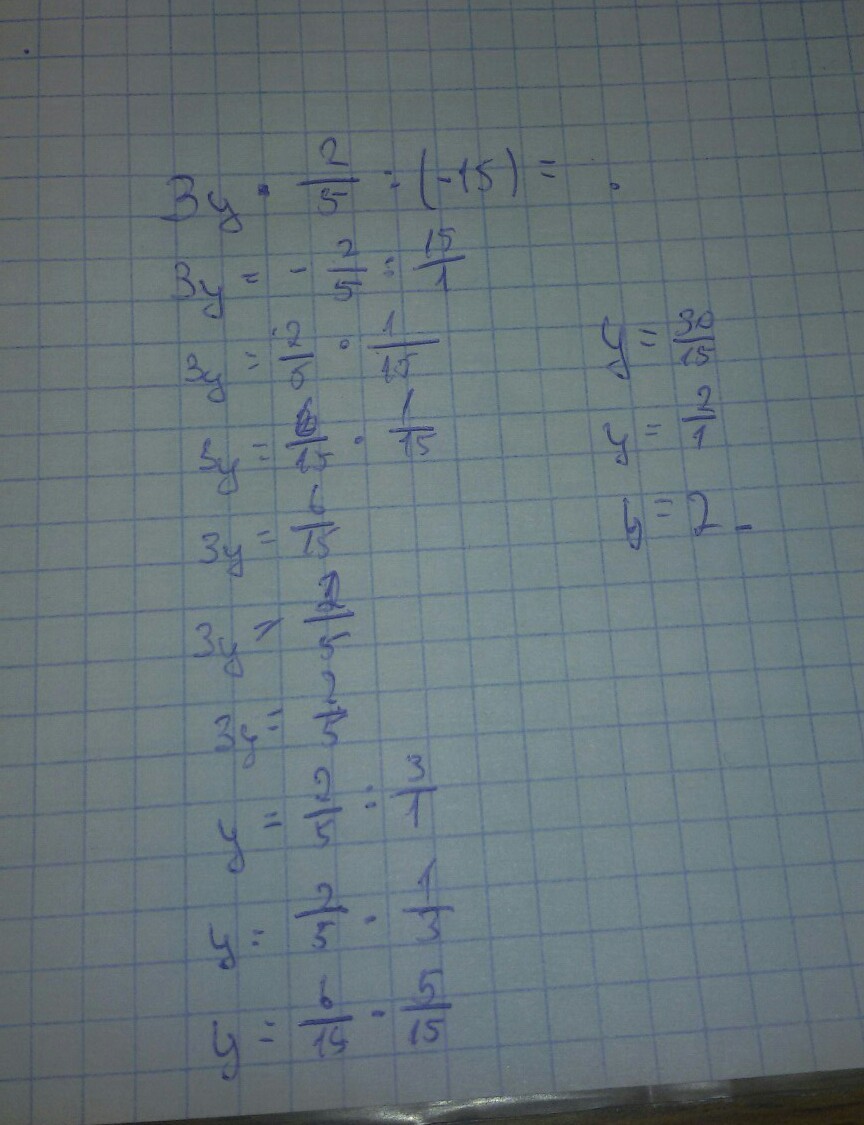 3y · 2/5 : (-15) =
3y = - 2/5 : 15/1
3y = 2/5 · 1/15
3y = 6/15 · 1/15
3y = 6/15
3y = 2/5
3y = 2/5
y = 2/5 : 3/1
y = 2/5 · 1/3
y = 6/15 · 5/15
y = 30/15
y = 2/1
y = 2